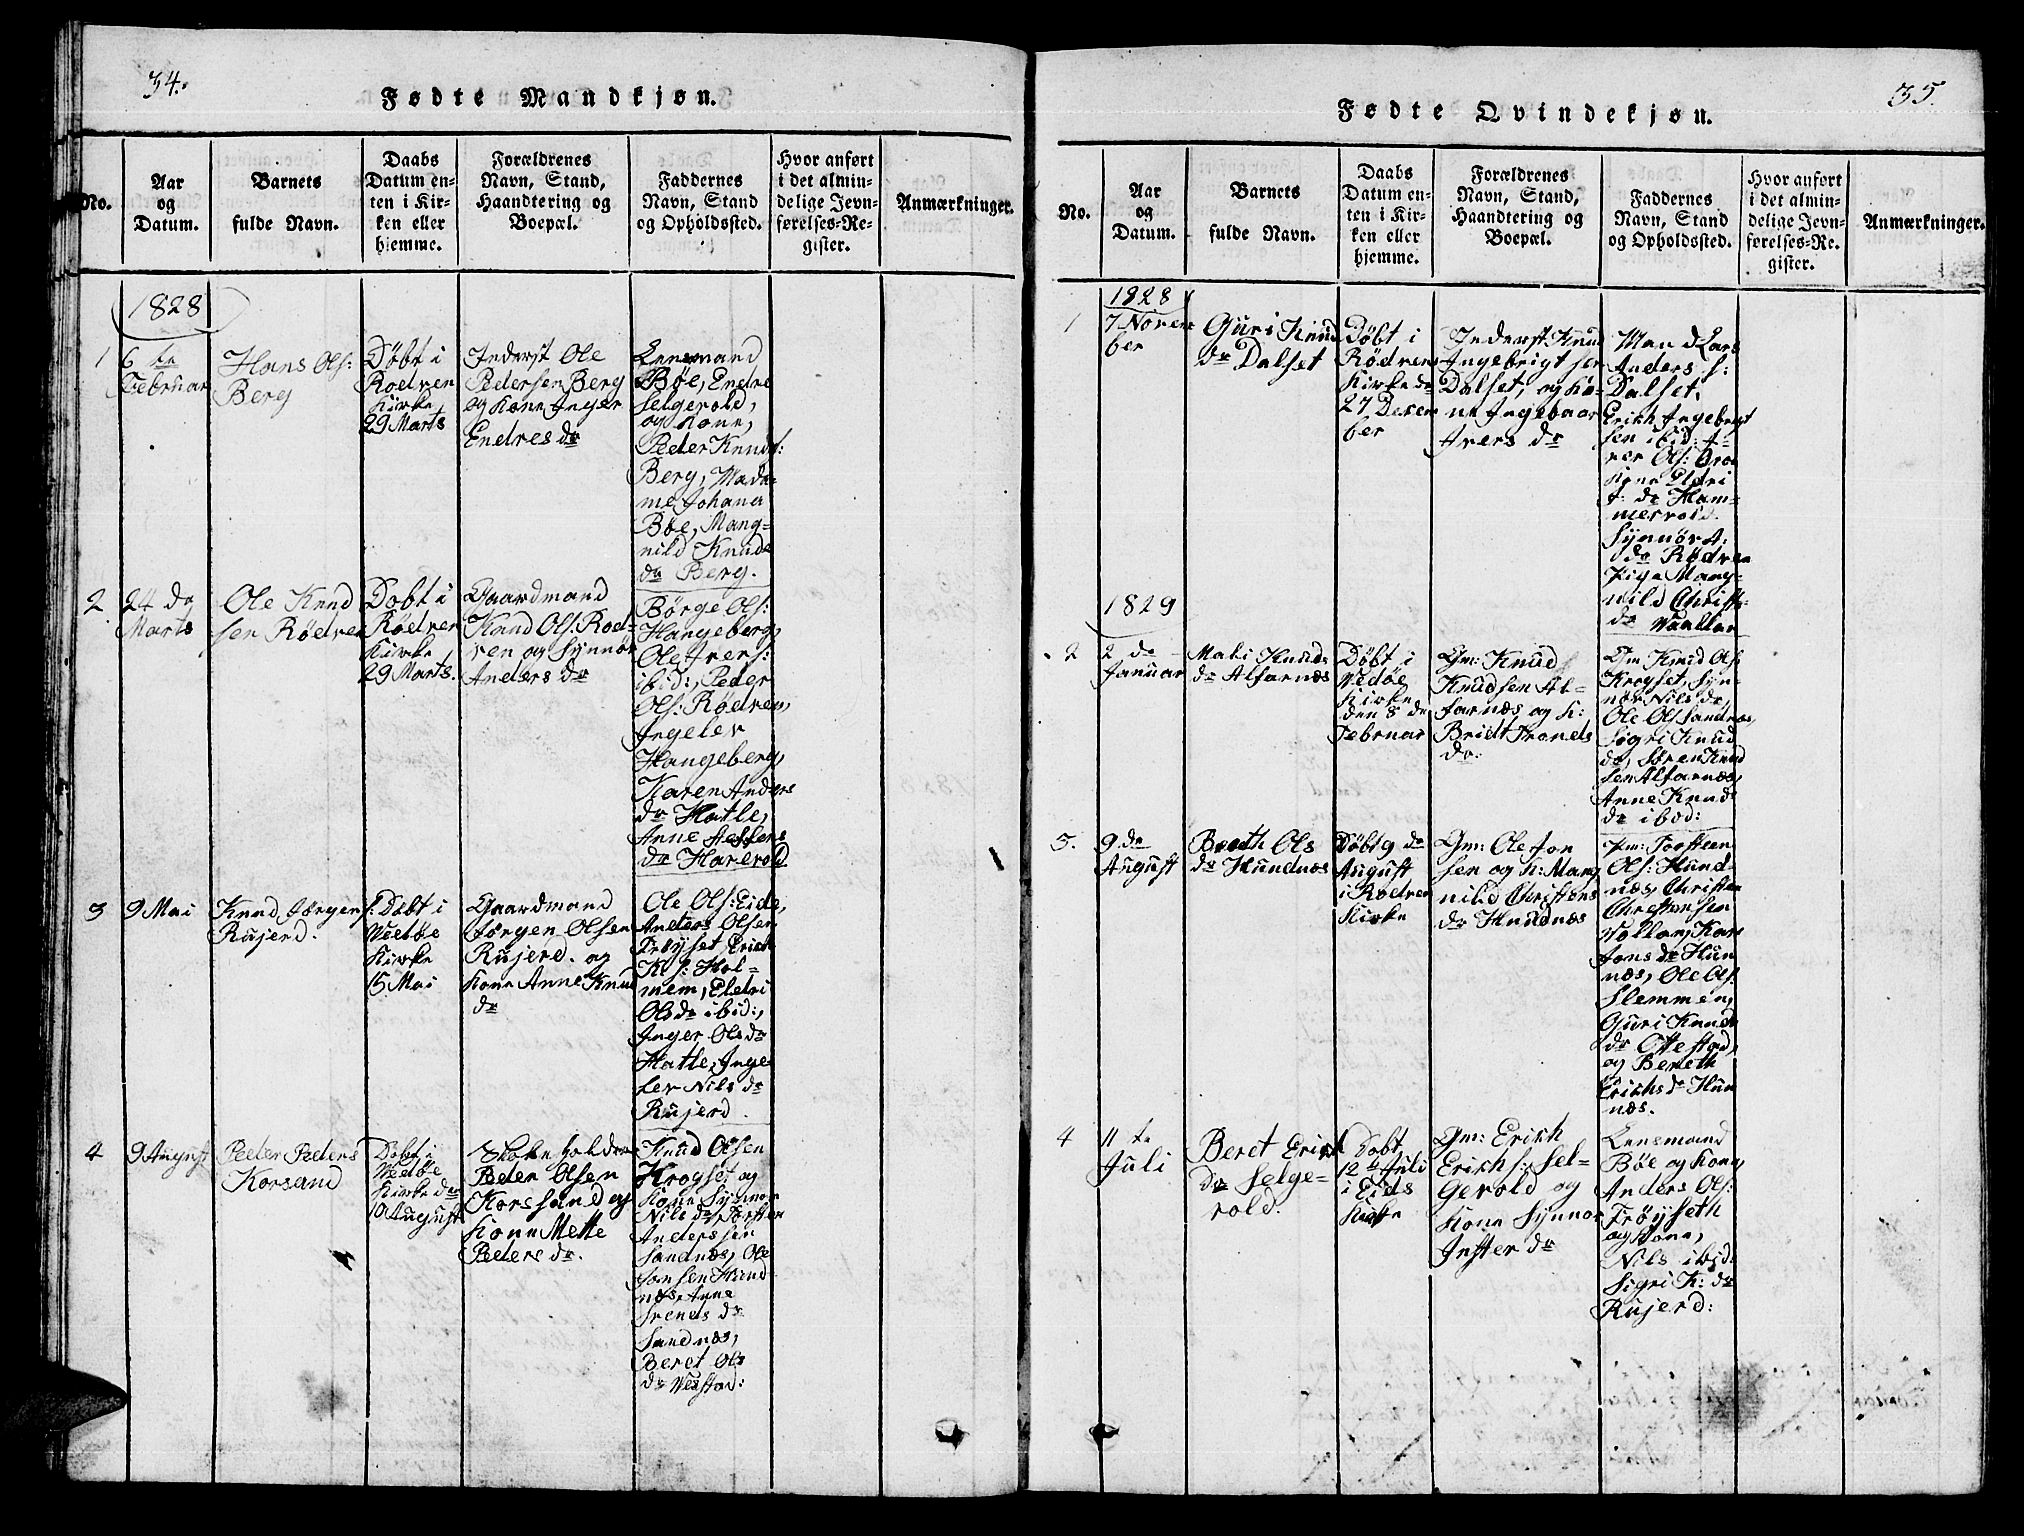 34.
Fødte Mandkjøn.
No.
Aar
og
Datum.
Barnets
fulde Navn.
Daabs
Datum en-
ten i Kir-
ken eller
hjemme.
Forældrenes
Navn, Stand,
Haandtering og
Boepæl.
Faddernes
Navn, Stand
og Opholdssted.
Hvor anført
i det almin-
delige Jevn-
førelses-Re-
gister.
Anmærkninger.
1828
1
6 te
Februar
Hans Ols:
Berg
Døbt i
Rødven
Kirke
29 Marts
Inderst Ole
Pedersen Berg
og Kone Inger
Endres dr
Lensmand
Bøe, Endre
Selgevold,
og Kone,
Peder Knuds:
Berg, Mada-
me Johana
Bøe, Mang-
nild Knuds
dr Berg.
2
24 de
Marts
Ole Knud
sen Rødven
Døbt i
Rødven
Kirke
29 Marts.
Gaardmand
Knud Ols: Rød-
ven og Synnør
Anders dr
Børge Ols:
Hangeberg,
Ole Ivers:
ibid:, Peder
Ols: Rødven,
Ingelev
Hangeberg,
Karen Anders
dr Hatle,
Anne
dr Harevold
3
9 Mai
Knud Jørgens:
Rujerd.
Døbt i
Wedøe
Kirke
15 Mai
Gaardmand
Jørgen Olsen
Rujerd. og
Kone Anne Knud
dr
Ole Ols: Eide,
Anders Olsen
Trøyset, Erick
K s: Hol-
mem, Eldri
Olsdr ibid:,
Inger Olsdr
Hatle, Inge
lev Nils dr
Rujerd.
4
9 August
Peder Peders
Korsand
Døbt i
Wedøe
Kirke de
10 August
holder
Peder Olsen
Korssand og
Kone Mette
Peders dr.
Knud Olsen
Krogset og
Kone Synnør
Nils dr, Torsten
Anderssen
Sandnæs, Ole
Jonsen Hund
næs, Anne
Svends dr
Sandnæs,
Beret Ols
dr Westad:
35.
Fødte Qvindekjøn.
No.
Aar
og
Datum.
Barnets
fulde Navn.
Daabs
Datum en-
ten i Kir-
ken eller
hjemme.
Forældrenes
Navn, Stand,
Haandtering og
Boepæl.
Faddernes
Navn, Stand
og Opholdssted.
Hvor anført
i det almin-
delige Jevn-
førelses-Re-
gister.
Anmærkninger.
1828
1
7 Novem
ber
Guri Knud
dr Dalset
Døbt i
Rødvens
Kirke de
27 Decem
ber
Inderst. Knud
Ingebrigt sen
Dalset, og Ko-
ne Ingebaar
Ivers dr
Mand Lars
Anders s:
Dalset,
Erich Ingebrigt
sen ibid: I-
ver Ols:
Kone Eldri
J: dr Ham-
mervold
Synnør A:
dr Rødven
Pige Mang-
nild Christ:
dr
1829
2
2 de
Januar
Mali Knuds
dr Alfarnæs
Døbt i
Wedøe
Kirke
den 8 de
Februar
Gm: Knud
Knudsen Al-
farnæs og K:
Bridt Tronds
dr.
Gm Knud Ols
Krogset, Syn-
nør Nils dr,
Ole Ols Sandnæs,
Sigri Knud
dr, Søren Knud
sen Alfarnæs,
Anne Knuds
dr ibid:
3.
9 de
August
Breth Ols
dr Hundnæs
Døbt 9 de
August
i Rødven
Kirke
Gm: Ole Jon
sen og K: Mang
nild Christens
dr Hundnæs
Torsteen
Ols: Hund-
næs, Christen
Christensen
Kari
Jons dr Hun
næs, Ole Ols:
Slemmen,
Guri Knuds
dr Ottestad,
og Bereth
Erichs dr Hun
næs.
4
11 te
Juli
Beret Erick
dr Selge-
vold.
Døbt
12 te Juli
i Eids
Kirke
Gm: Erich
Erich s: Sel-
gevold og
Kone Synnør
Jnster dr
Lensmand
Bøe og Kone,
Anders Ols:
Trøyseth
og Kone,
Nils ibid:
Sigri K: dr
Rujerd: